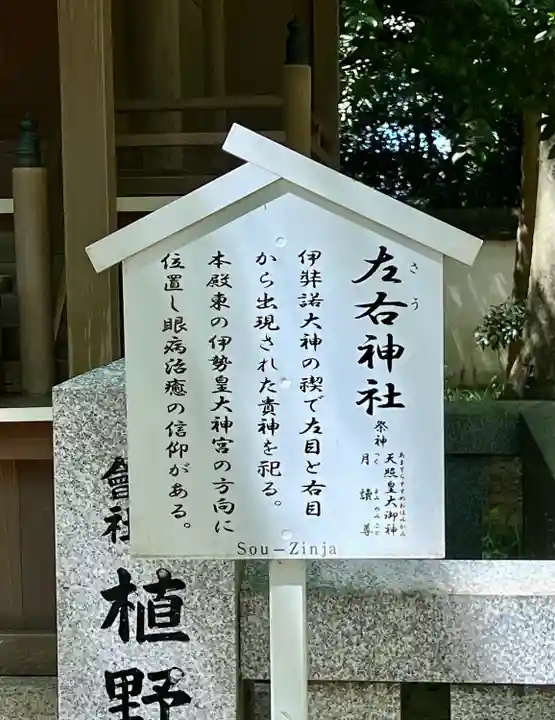 左右神社
さう
祭神
天照皇大御神
月讀尊
伊弉諾大神の禊で左目と右目
から出現された貴神を祀る。
本殿東の伊勢皇大神宮の方向に
位置し眼病治癒の信仰がある。
Sou－Zinja
會社
植野